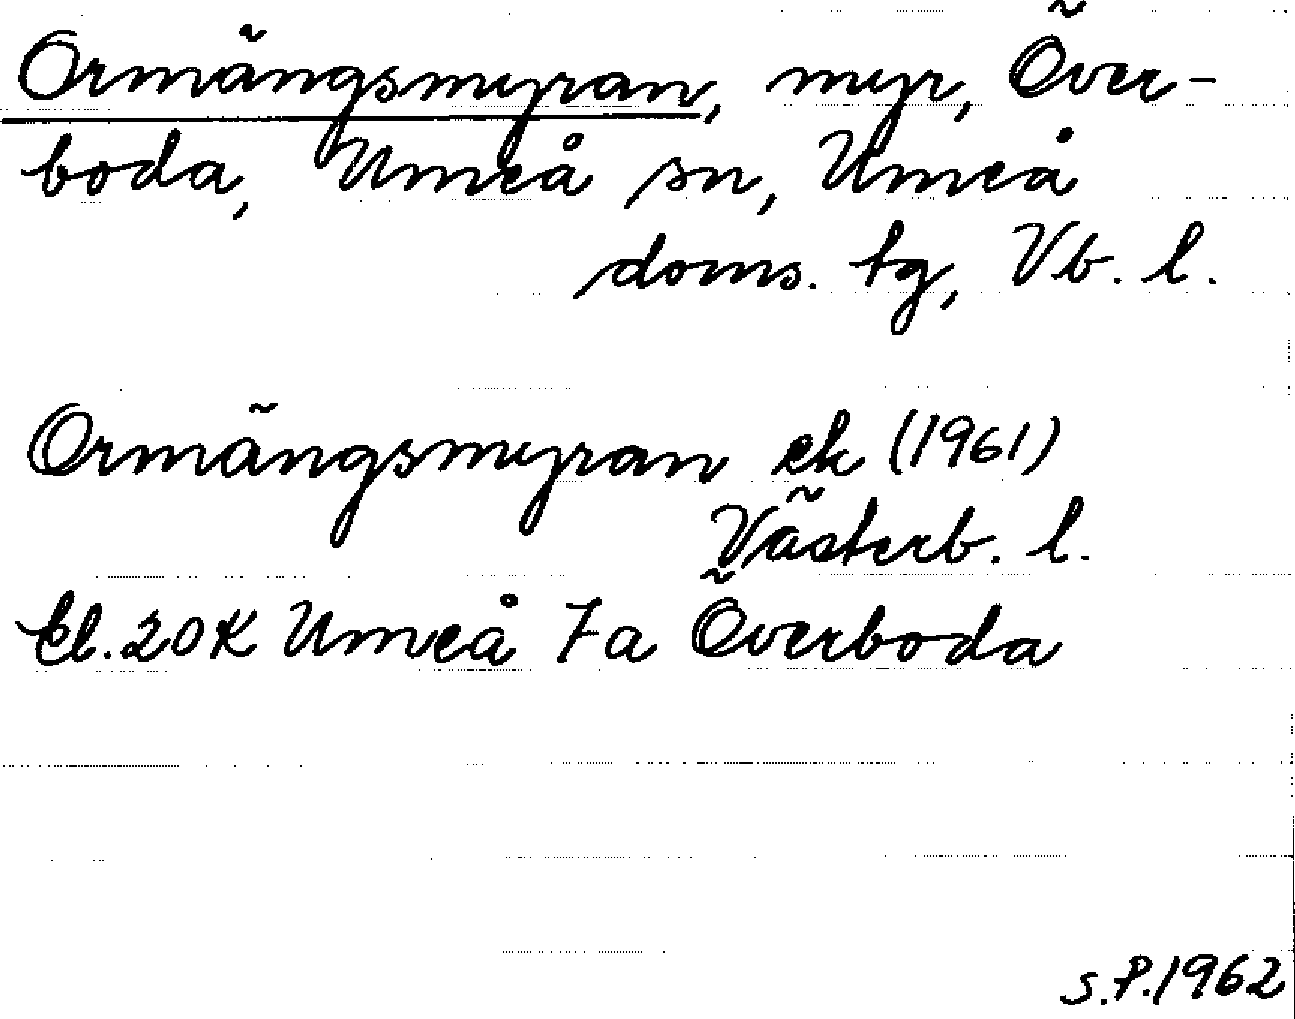 Ormängsmyran, myr, Över-
boda, Umeå sn, Umeå
doms. tg, Vb. l.
Ormängsmyran ek (1961)
Västerb. l.
bl. 20K Umeå 7a Överboda
S.P. 1962